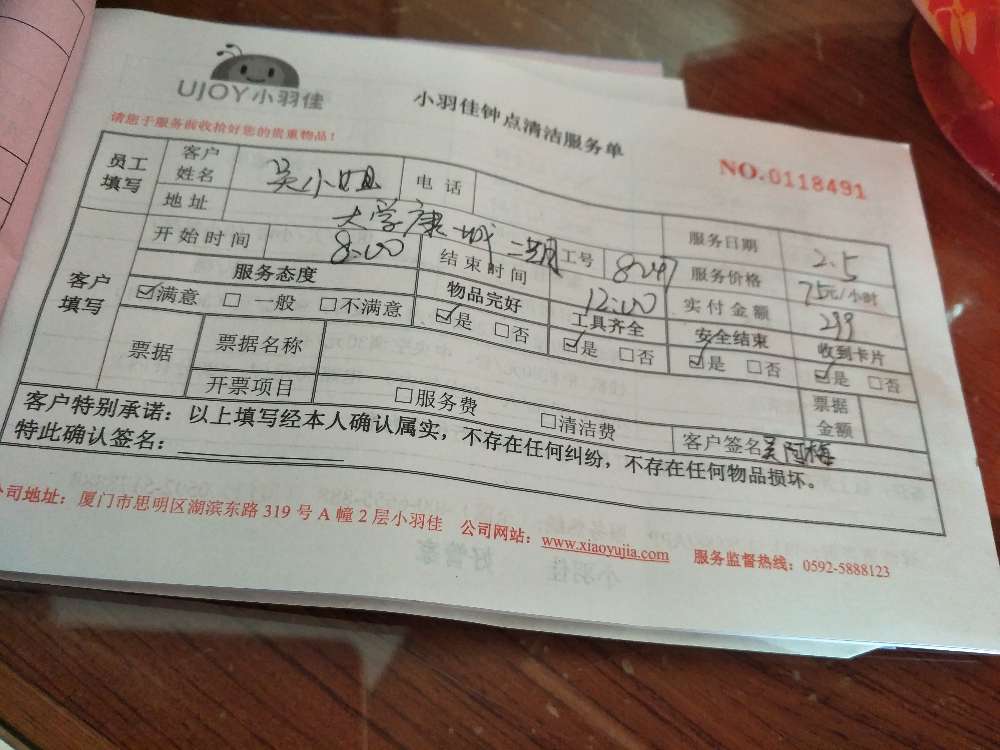 UJOY小羽佳
小羽佳钟点清洁服务单
请您于服务前收拾好您的贵重物品！
NO.0118491
员工填写 客户姓名 吴小姐 电话 服务日期 2.5
地址 大学康城二期 工号 8247 服务价格 75元/小时
开始时间 8:00 结束时间 12:00 实付金额 299
客户填写 服务态度 物品完好 工具齐全 安全结束 收到卡片
☑满意 □一般 □不满意 ☑是 □否 ☑是 □否 ☑是 □否 ☑是 □否
票据 票据名称 票据金额
开票项目 □服务费 □清洁费 客户签名 吴阿梅
客户特别承诺：以上填写经本人确认属实，不存在任何纠纷，不存在任何物品损坏。
特此确认签名：
公司地址：厦门市思明区湖滨东路 319 号 A 幢 2 层小羽佳 公司网站：www.xiaoyujia.com 服务监督热线：0592-5888123